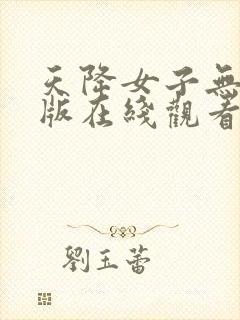 天降女子無
版在綫觀看
劉玉蕾